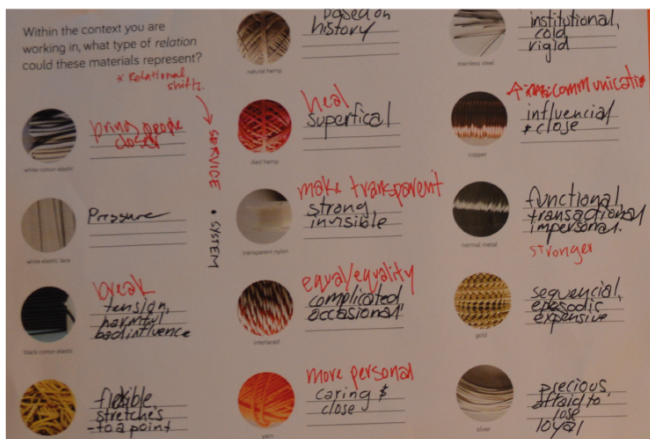 Within the context you are
working in, what type of relation
could these materials represent?
* Relational
shifts.
SERVICE • SYSTEM
white cotton elastic
bring people
closer
white elastic lace
Pressure
black cotton elastic
break
tension,
harmful
bad influence
flexible,
stretches
- to a point
natural hemp
based on
history
died hemp
heal
superfical
transparent nylon
make transparent
strong
invisible
interlaced
equal/equality
complicated
occasional
yarn
more personal
caring &
close
stainless steel
institutional,
cold
rigid
copper
communicatio
influencial
& close
normal metal
functional,
transactional
impersonal.
stronger
gold
sequencial,
episodic
expensive
silver
precious
afraid to
lose
loyal